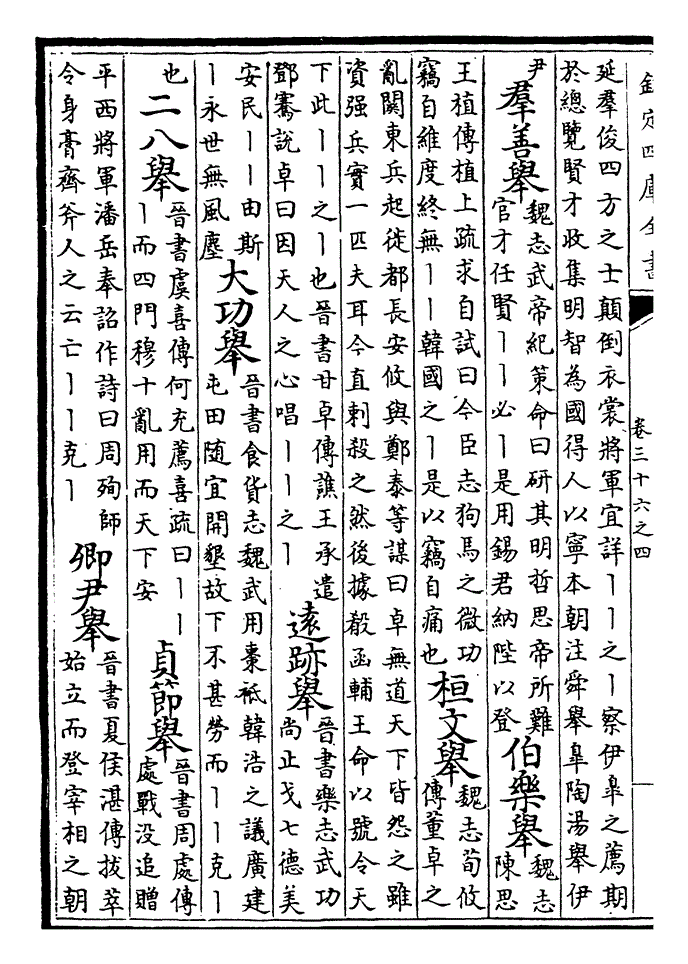 欽定四庫全書
卷三十六之四
延羣俊四方之士顛倒衣裳將軍宜詳丨丨之丨察伊臯之薦期
於總覽賢才收集明智為國得人以寧本朝注舜舉臯陶湯舉伊
尹
羣善舉
魏志武帝紀策命曰研其明哲思帝所難
官才任賢丨丨必丨是用錫君納陛以登
伯樂舉
魏志
陳思
王植傳植上疏求自試曰今臣志狗馬之微功
竊自維度終無丨丨韓國之丨是以竊自痛也
桓文舉
魏志荀攸
傳董卓之
亂關東兵起徙都長安攸與鄭泰等謀曰卓無道天下皆怨之雖
資强兵實一匹夫耳今直剌殺之然後據殽函輔王命以號令天
下此丨丨之丨也晉書甘卓傳譙王承遣
鄧騫說卓曰因天人之心唱丨丨之丨
遠跡舉
晉書樂志武功
尚止戈七德美
安民丨丨由斯
丨永世無風塵
大功舉
晉書食貨志魏武用棗祗韓浩之議廣建
屯田隨宜開墾故下不甚勞而丨丨克丨
也
二八舉
晉書虞喜傳何充薦喜疏曰丨丨
丨而四門穆十亂用而天下安
貞節舉
晉書周處傳
處戰没追贈
平西將軍潘岳奉詔作詩曰周殉師
令身膏齊斧人之云亡丨丨克丨
卿尹舉
晉書夏侯湛傳拔萃
始立而登宰相之朝